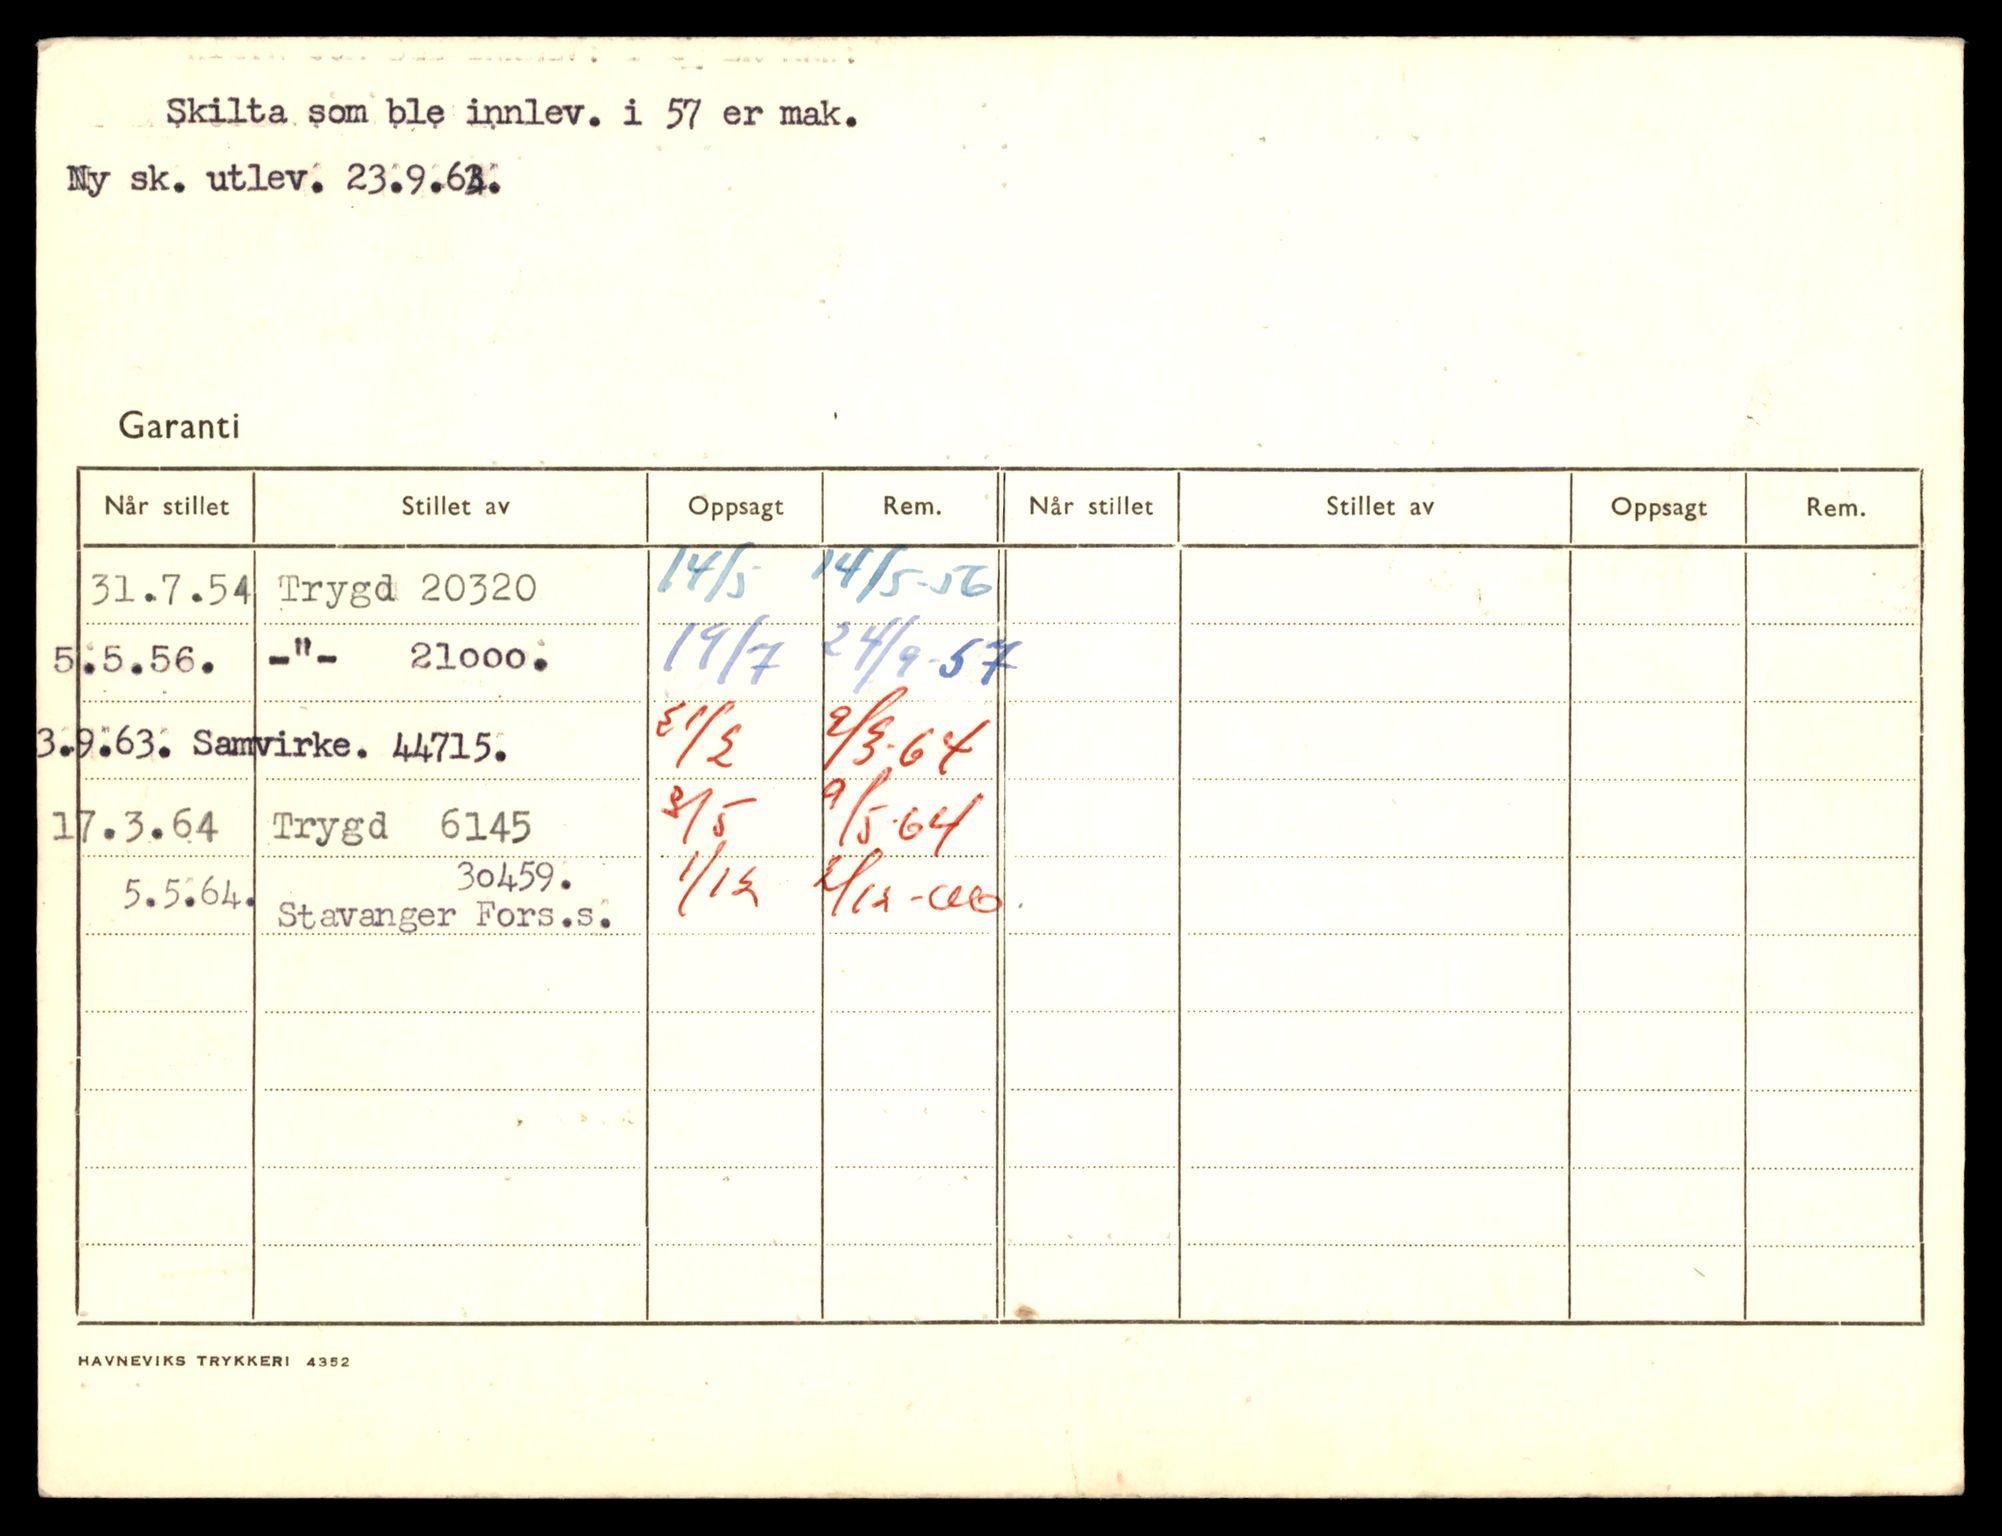 Skilta som ble innlev. i 57 er mak.
Ny sk. utlev. 23.9.63.
Garanti
Når stillet Stillet av Oppsagt Rem. Når stillet Stillet av Oppsagt Rem.
31.7.54 Trygd 20320 14/5 14/5-56
5.5.56. -"- 21000. 19/7 24/9-57
3.9.63. Samvirke. 44715. 21/2 2/3-64
17.3.64 Trygd 6145 3/5 9/5-64
30459.
5.5.64. Stavanger Fors.s. 1/12 2/12
HAVNEVIKS TRYKKERI 4352